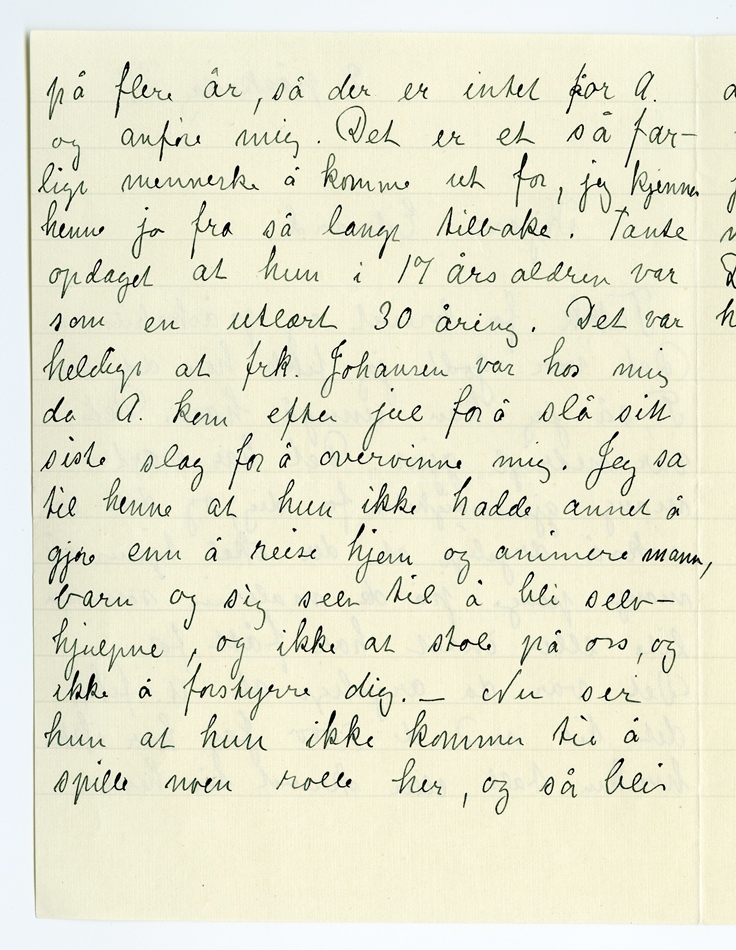 på flere år, så der er intet for A.
og anføre mig. Det er et så far-
lige menneske å komme ut for, jeg kjenner
henne jo fra så langt tilbake. Tante
opdaget at hun i 17 års aldren var
som en utlært 30 åring. Det var
heldigt at frk. Johansen var hos mig
da A. kom efter jul for å slå sitt
siste slag for å overvinne mig. Jeg sa
til henne at hun ikke hadde annet å
gjøre enn å reise hjem og animere mann,
barn og sig selv til å bli selv-
hjulpne, og ikke at stole på oss, og
ikke å forstyrre dig. — Nu ser
hun at hun ikke kommer til å
spille noen rolle her, og så blir